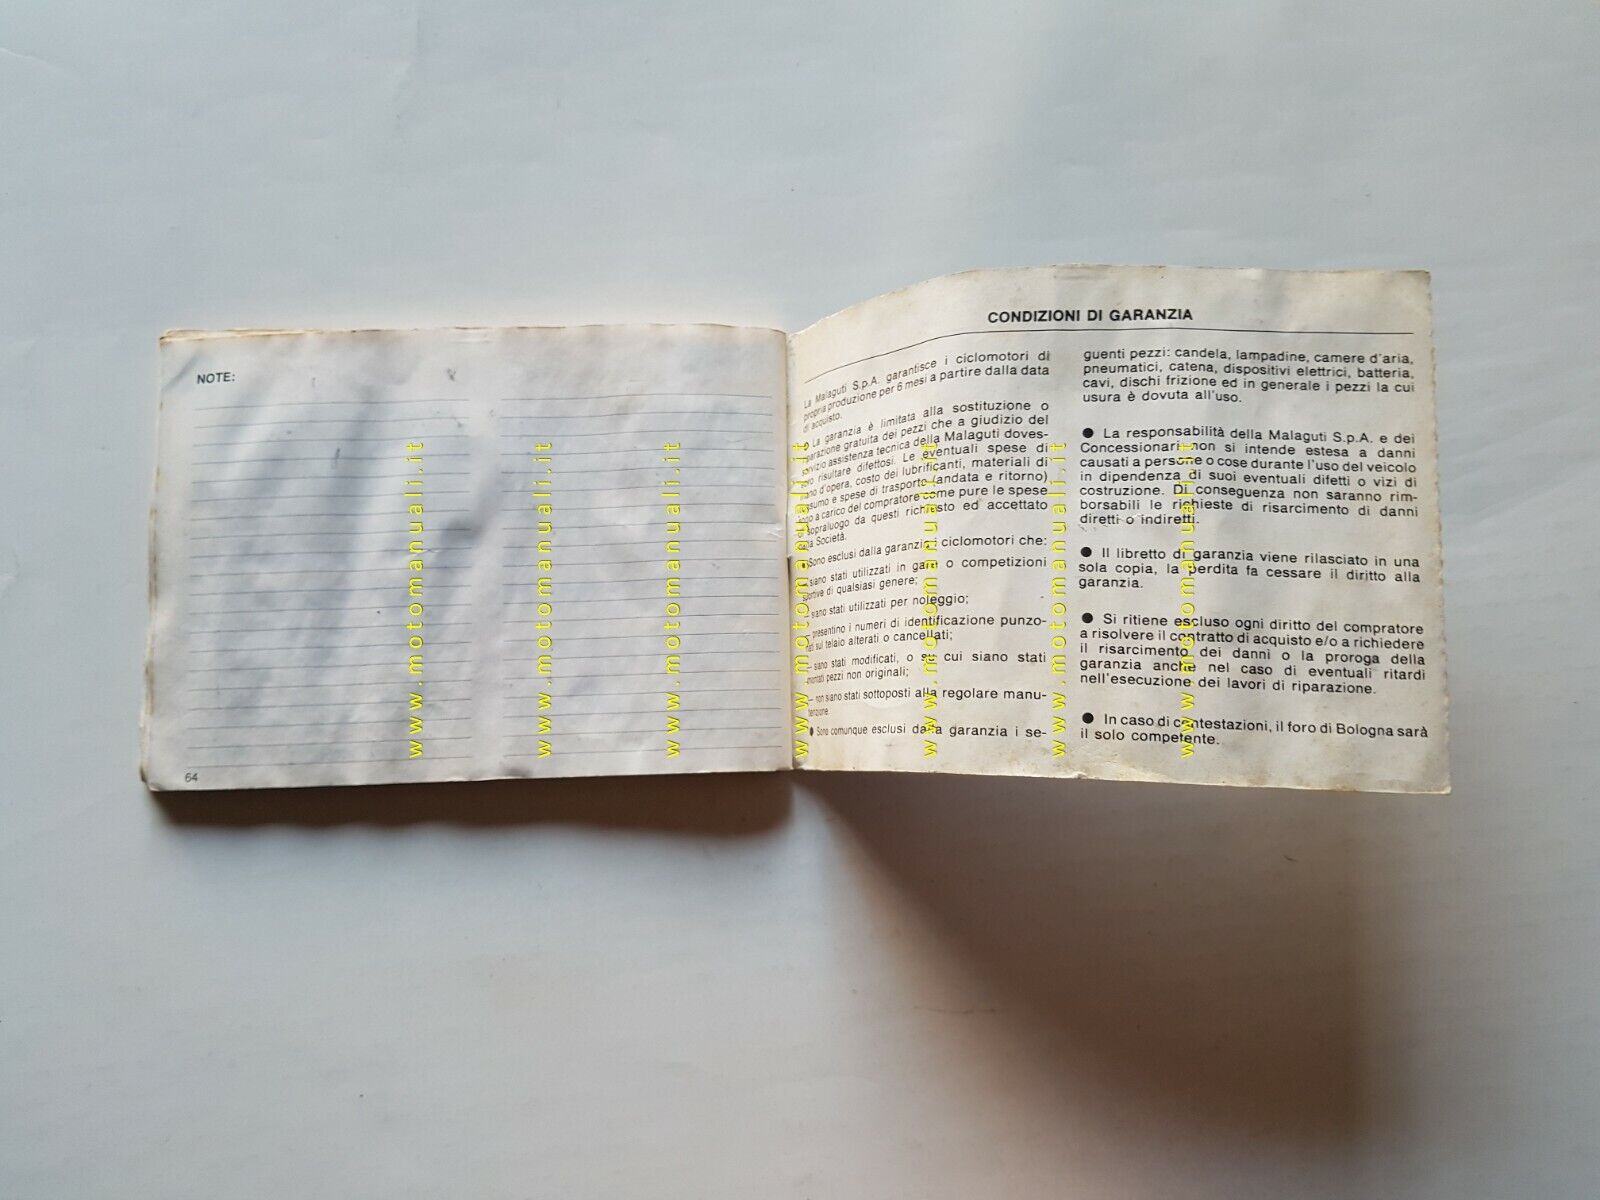 NOTE:
64
CONDIZIONI DI GARANZIA
La Malaguti S.p.A. garantisce i ciclomotori di
propria produzione per 6 mesi a partire dalla data
di acquisto.
● La garanzia è limitata alla sostituzione o
riparazione gratuita dei pezzi che a giudizio del
servizio assistenza tecnica della Malaguti doves-
sero risultare difettosi. Le eventuali spese di
mano d'opera, costo dei lubrificanti, materiali di
consumo e spese di trasporto (andata e ritorno)
sono a carico del compratore come pure le spese
di sopraluogo da questi richiesto ed accettato
dalla Società.
● Sono esclusi dalla garanzia i ciclomotori che:
– siano stati utilizzati in gare o competizioni
sportive di qualsiasi genere;
– siano stati utilizzati per noleggio;
– presentino i numeri di identificazione punzo-
nati sul telaio alterati o cancellati;
– siano stati modificati, o su cui siano stati
montati pezzi non originali;
– non siano stati sottoposti alla regolare manu-
tenzione.
● Sono comunque esclusi dalla garanzia i se-
guenti pezzi: candela, lampadine, camere d'aria,
pneumatici, catena, dispositivi elettrici, batteria,
cavi, dischi frizione ed in generale i pezzi la cui
usura è dovuta all'uso.
● La responsabilità della Malaguti S.p.A. e dei
Concessionari non si intende estesa a danni
causati a persone o cose durante l'uso del veicolo
in dipendenza di suoi eventuali difetti o vizi di
costruzione. Di conseguenza non saranno rim-
borsabili le richieste di risarcimento di danni
diretti o indiretti.
● Il libretto di garanzia viene rilasciato in una
sola copia, la perdita fa cessare il diritto alla
garanzia.
● Si ritiene escluso ogni diritto del compratore
a risolvere il contratto di acquisto e/o a richiedere
il risarcimento dei danni o la proroga della
garanzia anche nel caso di eventuali ritardi
nell'esecuzione dei lavori di riparazione.
● In caso di contestazioni, il foro di Bologna sarà
il solo competente.
www.motomanuali.it
www.motomanuali.it
www.motomanuali.it
www.motomanuali.it
www.motomanuali.it
www.motomanuali.it
www.motomanuali.it